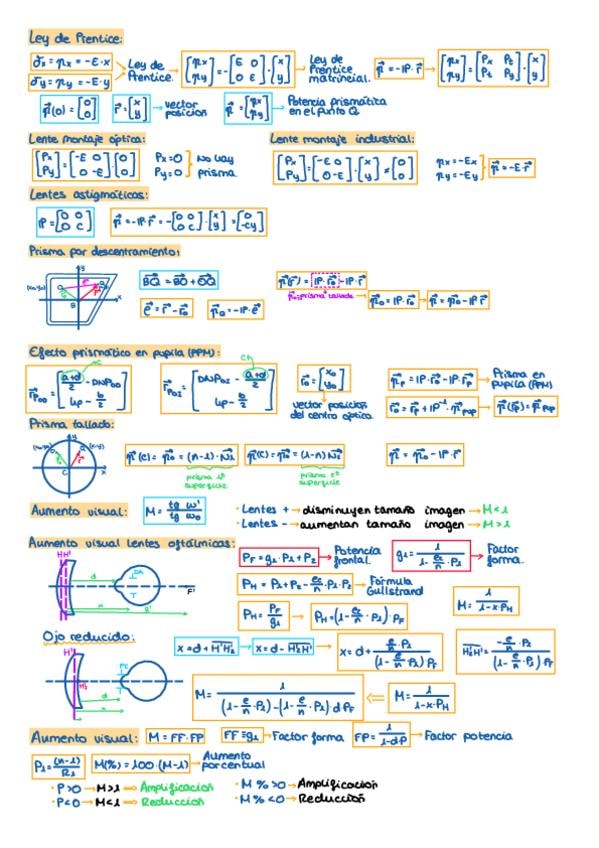 Ley de Prentice:
σx = πx = -E·x
σy = πy = -E·y
Ley de Prentice.
[πx πy] = -[E 0 0 E]·[x y]
Ley de Prentice matricial.
π = -P·r → [πx πy] = [Px Pt Pt Py]·[x y]
π(0) = [0 0]
r = [x y] → vector posición
π = [πx πy] → Potencia prismática en el punto Q
Lente montaje óptica:
[Px Py] = [-E 0 0 -E]·[0 0]
Px = 0
Py = 0
No hay prisma.
Lente montaje industrial:
[Px Py] = [-E 0 0 -E]·[x y] ≠ [0 0]
πx = -Ex
πy = -Ey
π = -E·r
Lentes astigmáticas:
P = [0 0 0 C]
π = -P·r = -[0 0 0 C]·[x y] = [0 -Cy]
Prisma por descentramiento:
BQ = BO + OQ
e = r - r0
πQ = -P·e
π(r) = P·r0 - P·r
π0: prisma tallado
π0 = P·r0 → π = π0 - P·r
Efecto prismático en pupila (PPM):
rPOD = [(a+d)/2 - DNPOD, hp - b/2]
rPOI = [DNPOI - (a+d)/2, hp - b/2]
r0 = [x0 y0]
vector posición del centro óptico
πp = P·r0 - P·rp → Prisma en pupila (PPM)
r0 = rp + P⁻¹·πpup → π(rp) = πpup
Prisma tallado:
π(C) = π0 = (n-1)·N1
prisma 1ª superficie
π(C) = π0 = (1-n)N2
prisma 2ª superficie
π = π0 - P·r
Aumento visual:
M = tg w' / tg w0
· Lentes + → disminuyen tamaño imagen → M<1
· Lentes - → aumentan tamaño imagen → M>1
Aumento visual lentes oftálmicas:
PF = g1·P1 + P2 → Potencia frontal.
g1 = 1 / (1 - e/n·P1) → Factor forma.
PH = P1 + P2 - e/n·P1·P2 → Fórmula Gullstrand
PH = PF / g1 → PH = (1 - e/n·P1)·PF
M = 1 / (1 - x·PH)
Ojo reducido:
x = d + H'H'2 → x = d - H'2H' → x = d + (e/n·P1) / ((1 - e/n·P1) PF)
H'2H' = (-e/n·P1) / ((1 - e/n·P1) PF)
M = 1 / ((1 - e/n·P1) - (1 - e/n·P1)·d PF) ⇐ M = 1 / (1 - x·PH)
Aumento visual:
M = FF·FP
FF = g1 → Factor forma
FP = 1 / (1 - d·P) → Factor potencia
P1 = (n-1) / R1
M(%) = 100·(M-1) → Aumento porcentual
· P>0 → M>1 ⇒ Amplificación
· P<0 → M<1 ⇒ Reducción
· M % >0 → Amplificación
· M % <0 → Reducción